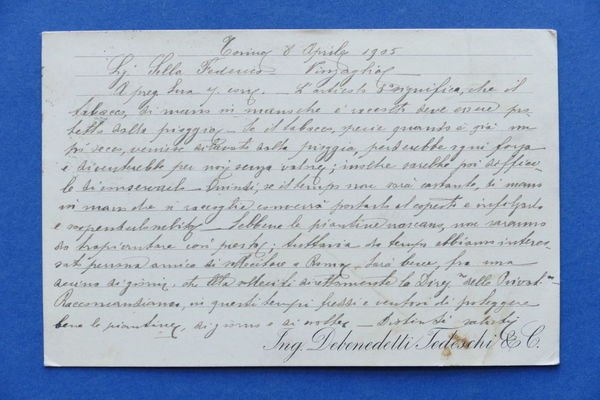 Torino 8 Aprile 1905
Sig. Sella Federico Vinzaglio
A preg. Sua 7 corr. L'articolo 2° significa, che il
tabacco, di mano in mano che è raccolto deve essere pro
tetto dalla pioggia. Se il tabacco, specie quando è già un
po' secco, venisse dilavato dalla pioggia, perderebbe ogni forza
e diventerebbe per noi senza valore; inoltre sarebbe poi diffici-
le di conservarlo. Quindi, se il tempo non sarà costante, di mano
in mano che si raccoglie converrà portarlo al coperto e infilzarlo
e sospenderlo subito. Sebbene le piantine nascano, non saranno
da trapiantare così presto; tuttavia da tempo abbiamo interes
sato persona amica di sollecitare a Roma. Sarà bene, fra una
decina di giorni, che Ella solleciti direttamente la Direz.ne delle Privat.ve
Raccomandiamo, in questi tempi freddi e ventosi di proteggere
bene le piantine, di giorno e di notte. Distinti saluti
Ing. Debenedetti Tedeschi & C.